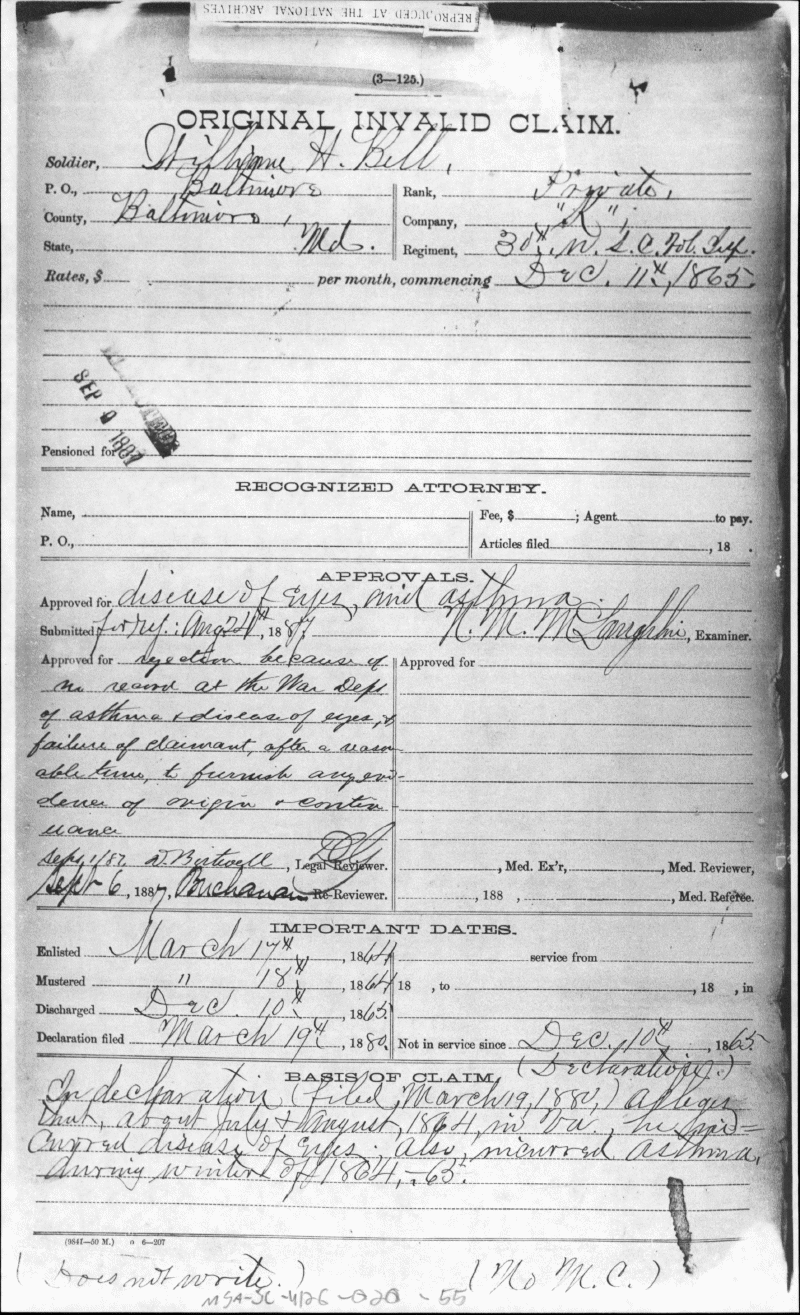 REPRODUCED AT THE NATIONAL ARCHIVES
(3—125.)
ORIGINAL INVALID CLAIM.
Soldier, William H. Bell,
P. O., Baltimore
Rank, Private,
County, Baltimore,
Company, "K",
State, Md.
Regiment, 30th. U. S. C. Vol. Inf.
Rates, $ per month, commencing Dec. 11th, 1865.
SEP 9 1887
Pensioned for
RECOGNIZED ATTORNEY.
Name,
Fee, $ ; Agent to pay.
P. O.,
Articles filed , 18 .
APPROVALS.
Approved for disease of eyes, and asthma.
Submitted for rej: Aug 24th, 1887, N. M. McLaughlin, Examiner.
Approved for rejection because of
no record at the War Dept
of asthma & disease of eyes, &
failure of claimant, after a reason-
able time, to furnish any evi-
dence of origin & contin-
uance
Sept 1/87 D. Birtwell, Legal Reviewer.
Sept 6, 1887, Buchanan Re-Reviewer.
Approved for
, Med. Ex'r, , Med. Reviewer,
, 188 , , Med. Referee.
IMPORTANT DATES.
Enlisted March 17th, 1864
Mustered " 18th, 1864
Discharged Dec. 10th, 1865
Declaration filed March 19th, 1880
service from
18 , to , 18 , in
Not in service since Dec. 10th, 1865
(Declaration.)
BASIS OF CLAIM.
In declaration (filed March 19, 1880,) alleges
that, about July & August, 1864, in Va., he in=
curred disease of eyes; also, incurred asthma,
during winter of 1864,-65.
(9841—50 M.) 6—207
(Does not write.)
(No M. C.)
MSA-SC-4126-020-55